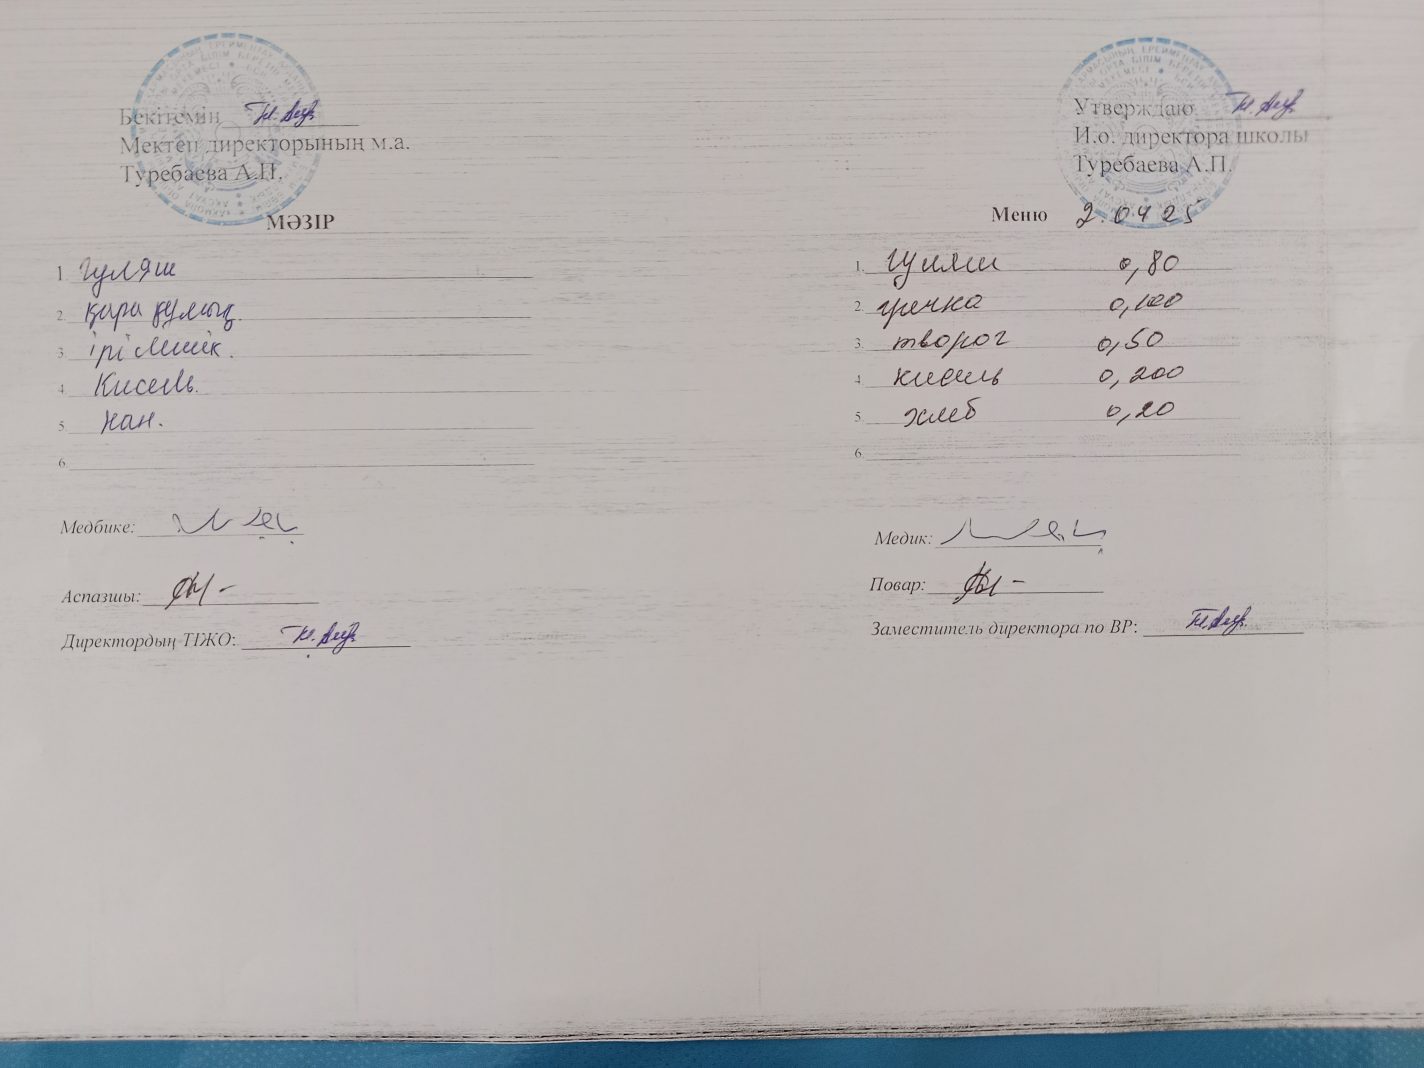 Бекітемін
Мектеп директорының м.а.
Туребаева А.П.
МӘЗІР
1. гуляш
2. қара құмық.
3. ірімшік.
4. Кисель.
5. нан.
6.
Медбике:
Аспазшы:
Директордың ТІЖО:
Утверждаю
И.о. директора школы
Туребаева А.П.
Меню 2.04 25
1. гуляш 0,80
2. гречка 0,100
3. творог 0,50
4. кисель 0,200
5. хлеб 0,20
6.
Медик:
Повар:
Заместитель директора по ВР: